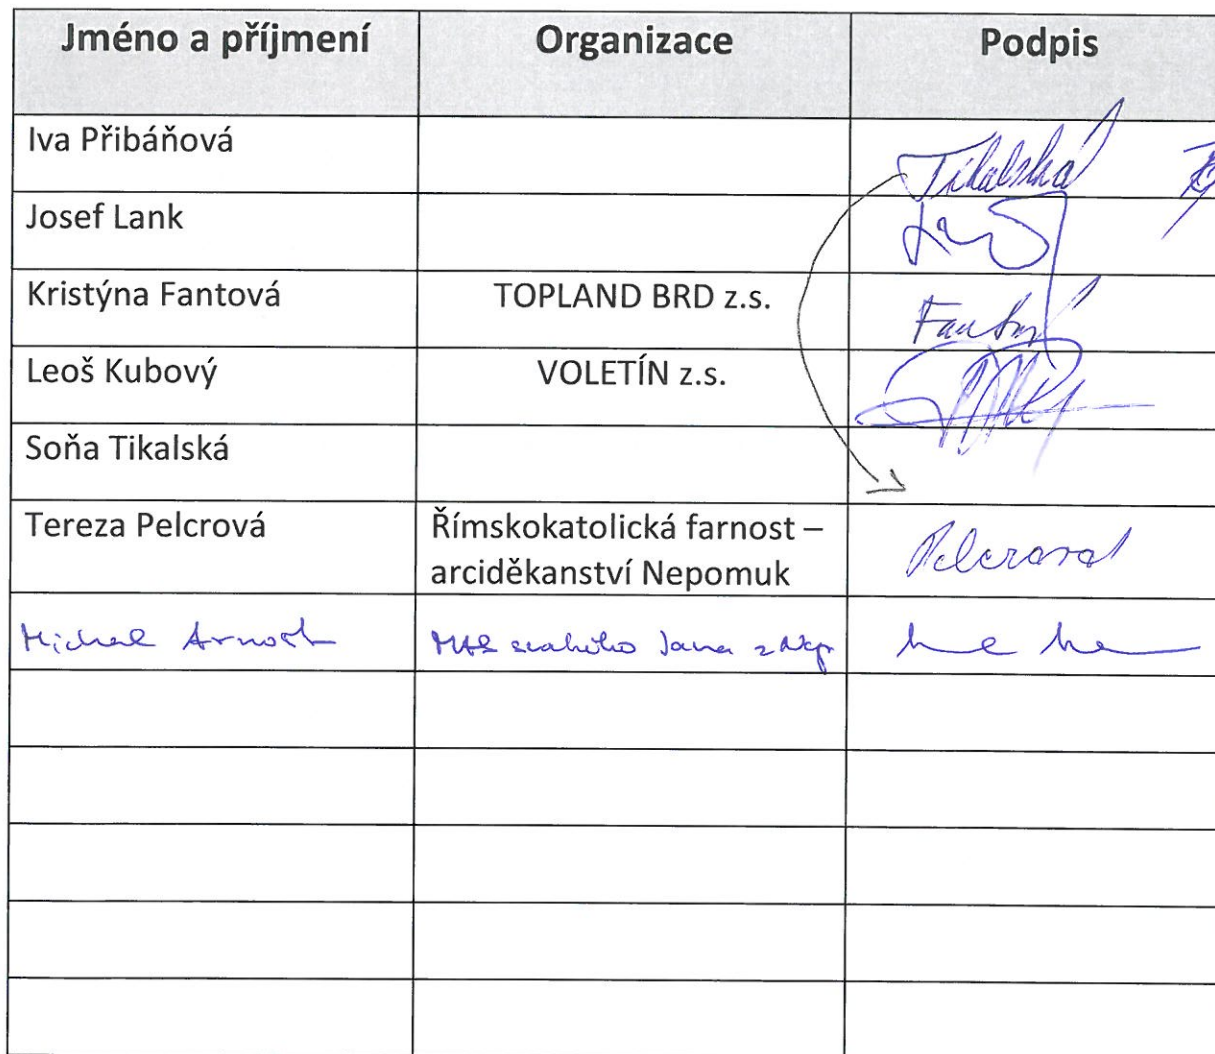 Jméno a příjmení Organizace Podpis
Iva Přibáňová Tikalská
Josef Lank
Kristýna Fantová TOPLAND BRD z.s. Fantov
Leoš Kubový VOLETÍN z.s.
Soňa Tikalská
Tereza Pelcrová Římskokatolická farnost –
arciděkanství Nepomuk Pelcrová
Michal Arnošt MAS svatého Jana z Nep